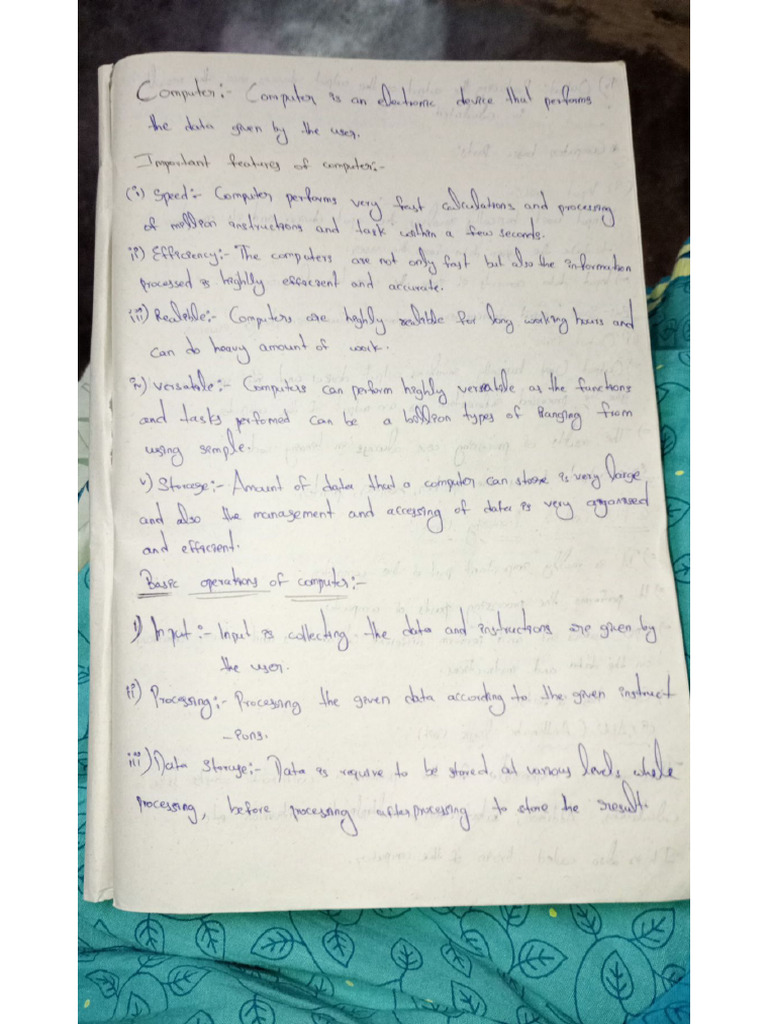 Computer:- Computer is an electronic device that performs
the data given by the user.
Important features of computer:-
(i) Speed:- Computer performs very fast calculations and processing
of million instructions and task within a few seconds.
ii) Efficiency:- The computers are not only fast but also the information
processed is highly efficient and accurate.
iii) Realible:- Computers are highly realible for long working hours and
can do heavy amount of work.
iv) Versatile:- Computers can perform highly versatile as the functions
and tasks perfomed can be a billion types of Ranging from
using semple.
v) Storage:- Amount of data that a computer can store is very large
and also the management and accessing of data is very organised
and efficient.
Basic operations of computer:-
i) Input:- Input is collecting the data and instructions are given by
the user.
ii) Processing:- Processing the given data according to the given instruct
-ions.
iii) Data storage:- Data is require to be stored at various levels while
processing, before processing after processing to store the result.